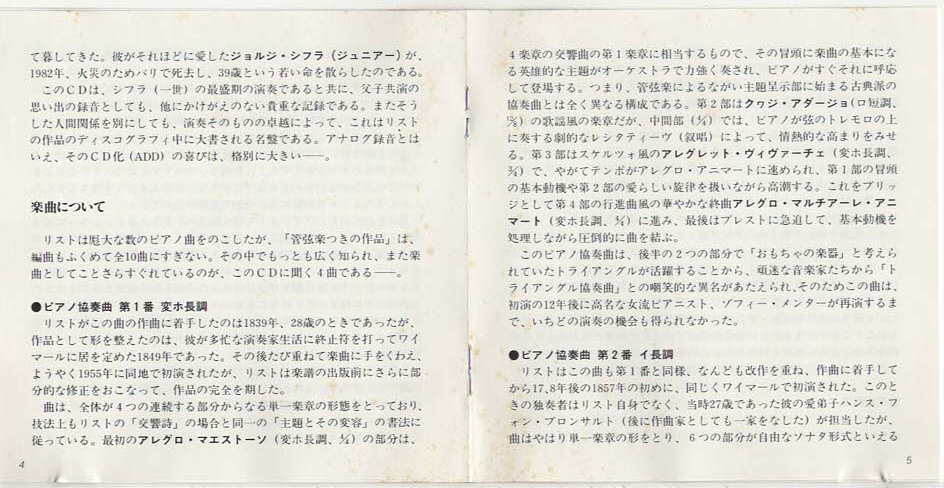 て暮してきた。彼がそれほどに愛したジョルジ・シフラ（ジュニアー）が、
1982年、火災のためパリで死去し、39歳という若い命を散らしたのである。
このＣＤは、シフラ（一世）の最盛期の演奏であると共に、父子共演の
思い出の録音としても、他にかけがえのない貴重な記録である。またそう
した人間関係を別にしても、演奏そのものの卓越によって、これはリスト
の作品のディスコグラフィ中に大書される名盤である。アナログ録音とは
いえ、そのＣＤ化（ADD）の喜びは、格別に大きい――。
楽曲について
リストは厖大な数のピアノ曲をのこしたが、「管弦楽つきの作品」は、
編曲もふくめて全10曲にすぎない。その中でもっとも広く知られ、また楽
曲としてことさらすぐれているのが、このＣＤに聞く４曲である――。
●ピアノ協奏曲 第１番 変ホ長調
リストがこの曲の作曲に着手したのは1839年、28歳のときであったが、
作品として形を整えたのは、彼が多忙な演奏家生活に終止符を打ってワイ
マールに居を定めた1849年であった。その後たび重ねて楽曲に手をくわえ、
ようやく1955年に同地で初演されたが、リストは楽譜の出版前にさらに部
分的な修正をおこなって、作品の完全を期した。
曲は、全体が４つの連続する部分からなる単一楽章の形態をとっており、
技法上もリストの「交響詩」の場合と同一の「主題とその変容」の書法に
従っている。最初のアレグロ・マエストーソ（変ホ長調、4/4）の部分は、
4
４楽章の交響曲の第１楽章に相当するもので、その冒頭に楽曲の基本にな
る英雄的な主題がオーケストラで力強く奏され、ピアノがすぐそれに呼応
して登場する。つまり、管弦楽によるながい主題呈示部に始まる古典派の
協奏曲とは全く異なる構成である。第２部はクヮジ・アダージョ（ロ短調、
の歌謡風の楽章だが、中間部（4/4）では、ピアノが弦のトレモロの上
に奏する劇的なレシタティーヴ（叙唱）によって、情熱的な高まりをみせ
る。第３部はスケルツォ風のアレグレット・ヴィヴァーチェ（変ホ長調、
3/4）で、やがてテンポがアレグロ・アニマートに速められ、第１部の冒頭
の基本動機や第２部の愛らしい旋律を扱いながら高潮する。これをブリッ
ジとして第４部の行進曲風の華やかな終曲アレグロ・マルチアーレ・アニ
マート（変ホ長調、4/4）に進み、最後はプレストに急迫して、基本動機を
処理しながら圧倒的に曲を結ぶ。
このピアノ協奏曲は、後半の２つの部分で「おもちゃの楽器」と考えら
れていたトライアングルが活躍することから、頑迷な音楽家たちから「ト
ライアングル協奏曲」との嘲笑的な異名があたえられ、そのためこの曲は、
初演の12年後に高名な女流ピアニスト、ゾフィー・メンターが再演するま
で、いちどの演奏の機会も得られなかった。
●ピアノ協奏曲 第２番 イ長調
リストはこの曲も第１番と同様、なんども改作を重ね、作曲に着手して
から17､8年後の1857年の初めに、同じくワイマールで初演された。このと
きの独奏者はリスト自身でなく、当時27歳であった彼の愛弟子ハンス・フ
ォン・ブロンサルト（後に作曲家としても一家をなした）が担当したが、
曲はやはり単一楽章の形をとり、６つの部分が自由なソナタ形式といえる
5